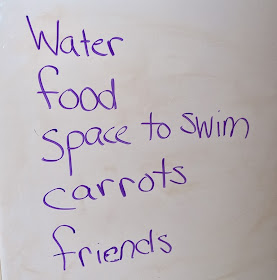 Water
food
space to swim
carrots
friends